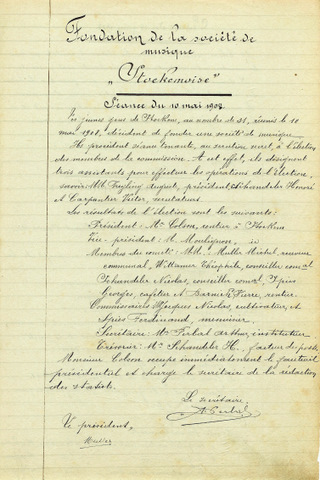 Fondation de la société de
musique
"Stockemoise"
Séance du 10 mai 1908
Les jeunes gens de Stockem, au nombre de 21, réunis le 10
mai 1908, décident de fonder une société de musique
président séance tenante, au scrutin secret à l'élection
des membres de la commission. A cet effet, ils désignent
trois assistants pour effectuer les opérations de l'élection,
savoir: MM. August, président, Schandeler Honoré
et Carpentier Victor, scrutateurs
Les résultats de l'élection sont les suivants:
Président: Mr Colson, rentier à Stockem
Vice-président: M. id
Membres du comité: MM. Muller Michel, receveur
communal, Wittamer Théophile, conseiller comal
Schandeler Nicolas, conseiller comal, Spies
Georges, cafetier et Pierre, rentier.
Commissaires Nicolas, cultivateur, et
Spies Ferdinand, menuisier
Secrétaire: Mr arthur, instituteur
Trésorier: Mr Schandeler H., facteur de poste
Monsieur Colson occupe immédiatement le fauteuil
présidentiel et charge le secrétaire de la rédaction
des statuts.
Le secrétaire,
Le président,
Muller